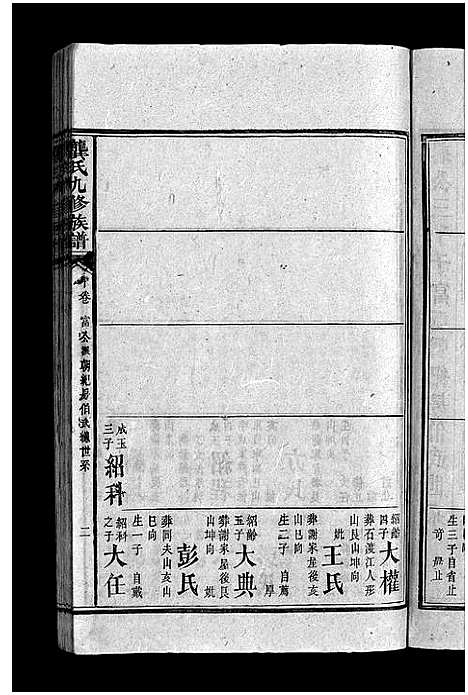 生三子自省止
龔氏九修族譜
卷
富公派朝
世系
二
成玉
三子
紹科
紹齡
四子
大權
葬石渡江人形
山艮山坤向
妣
王氏
葬謝家屋後亥
山巳向
生二子 自篤
厚
紹齡
五子
大典
葬謝家屋後艮
山坤向 妣
彭氏
葬同夫山亥山
巳向
生一子 自戴
紹科
之子
大任